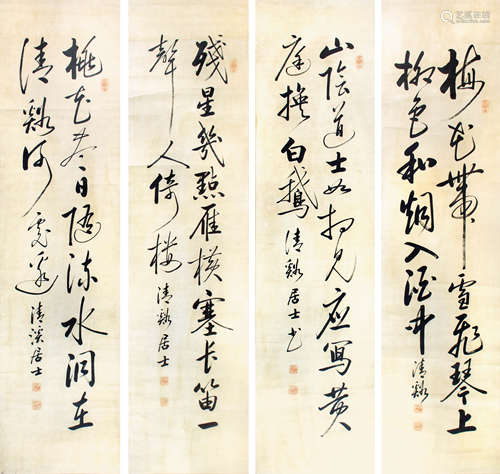 梅花带雪飛琴上
柳色和烟入酒中
清谿
山陰道士如相見應寫黄
庭換白鵝
清谿居士书
殘星幾點雁横塞长笛一
聲人倚楼
清谿居士
桃花尽日随流水洞在
清谿何處邊
清溪居士